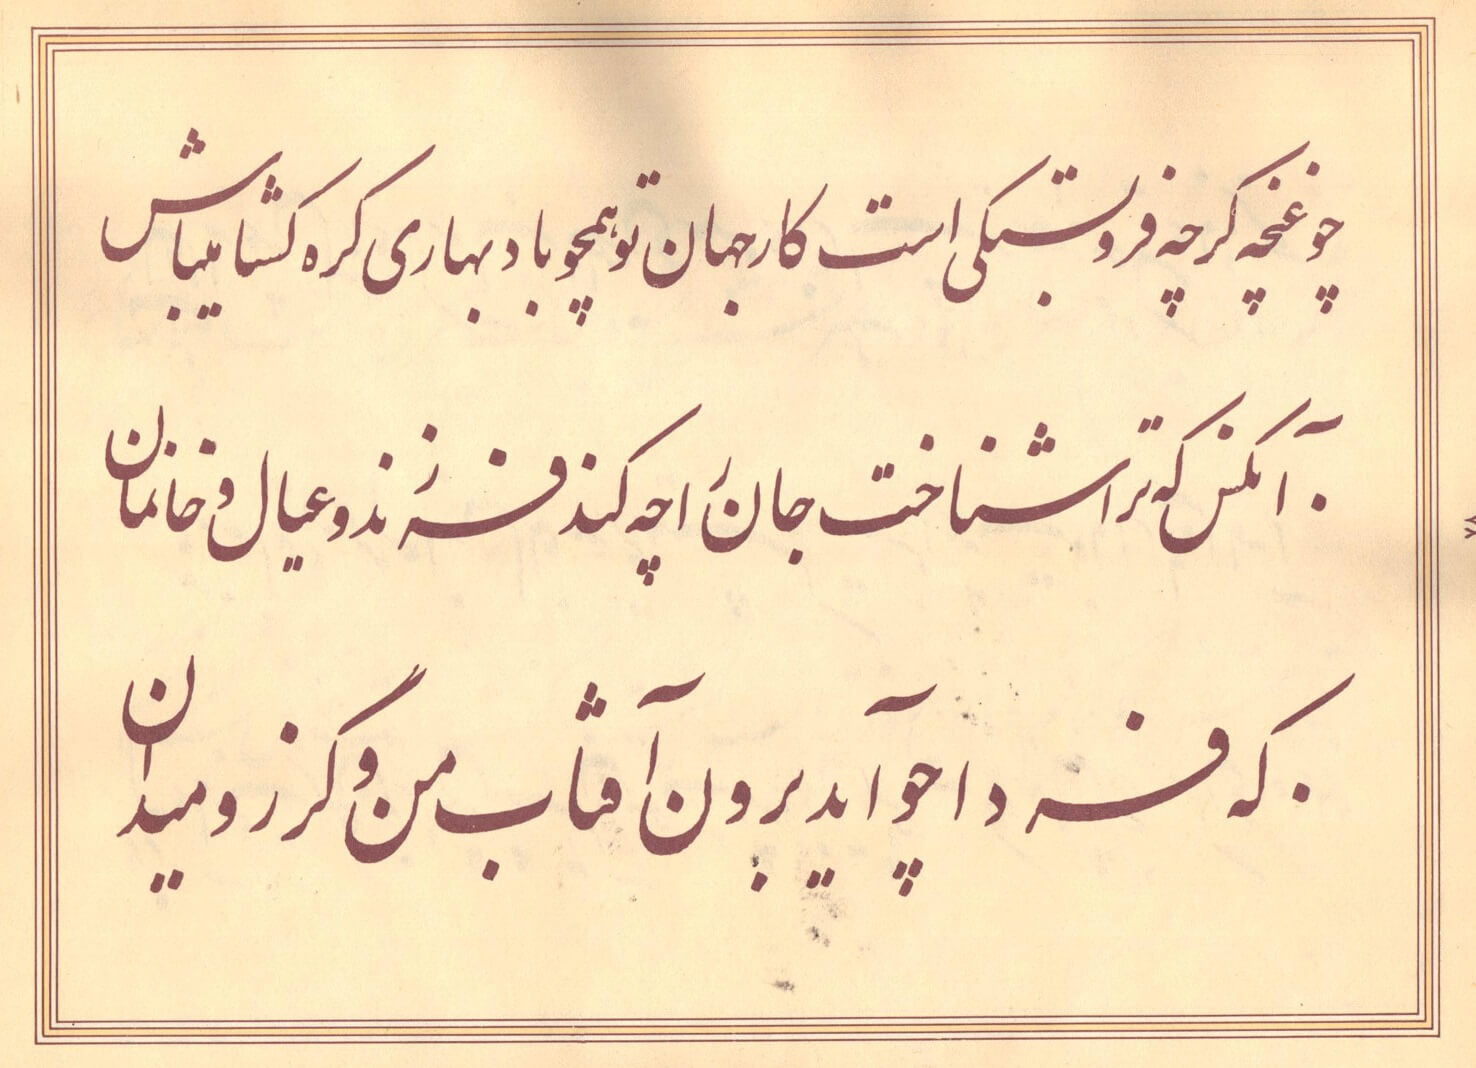 چو غنچه گرچه فروبستگی است کار جهان تو همچو باد بهاری گره گشا میباش
آنکس که ترا شناخت جان را چه کند فرزند و عیال و خانمان
که فردا چو آید برون آفتاب من و گرز و میدان
۷۸